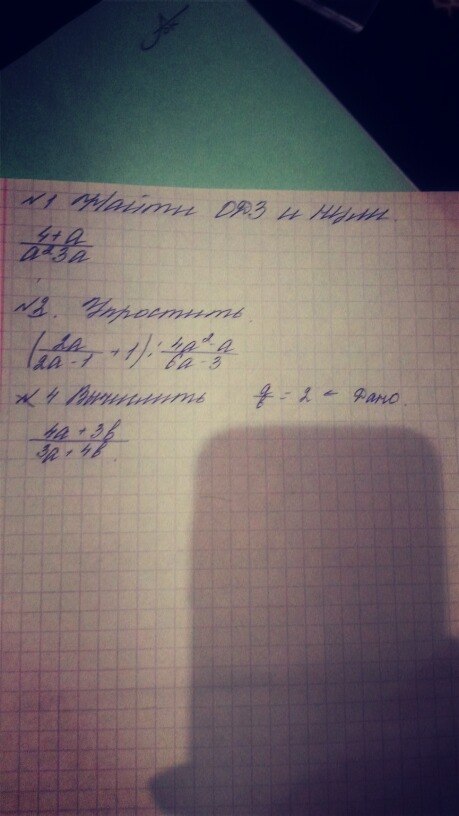 №1 Найти ОДЗ и нули.
4+a
a² 3a
№2. Упростить.
(2a/2a-1 + 1) : 4a²-a/6a-3
№4 Вычислить a/b = 2 ← Дано.
4a + 3b
3a + 4b